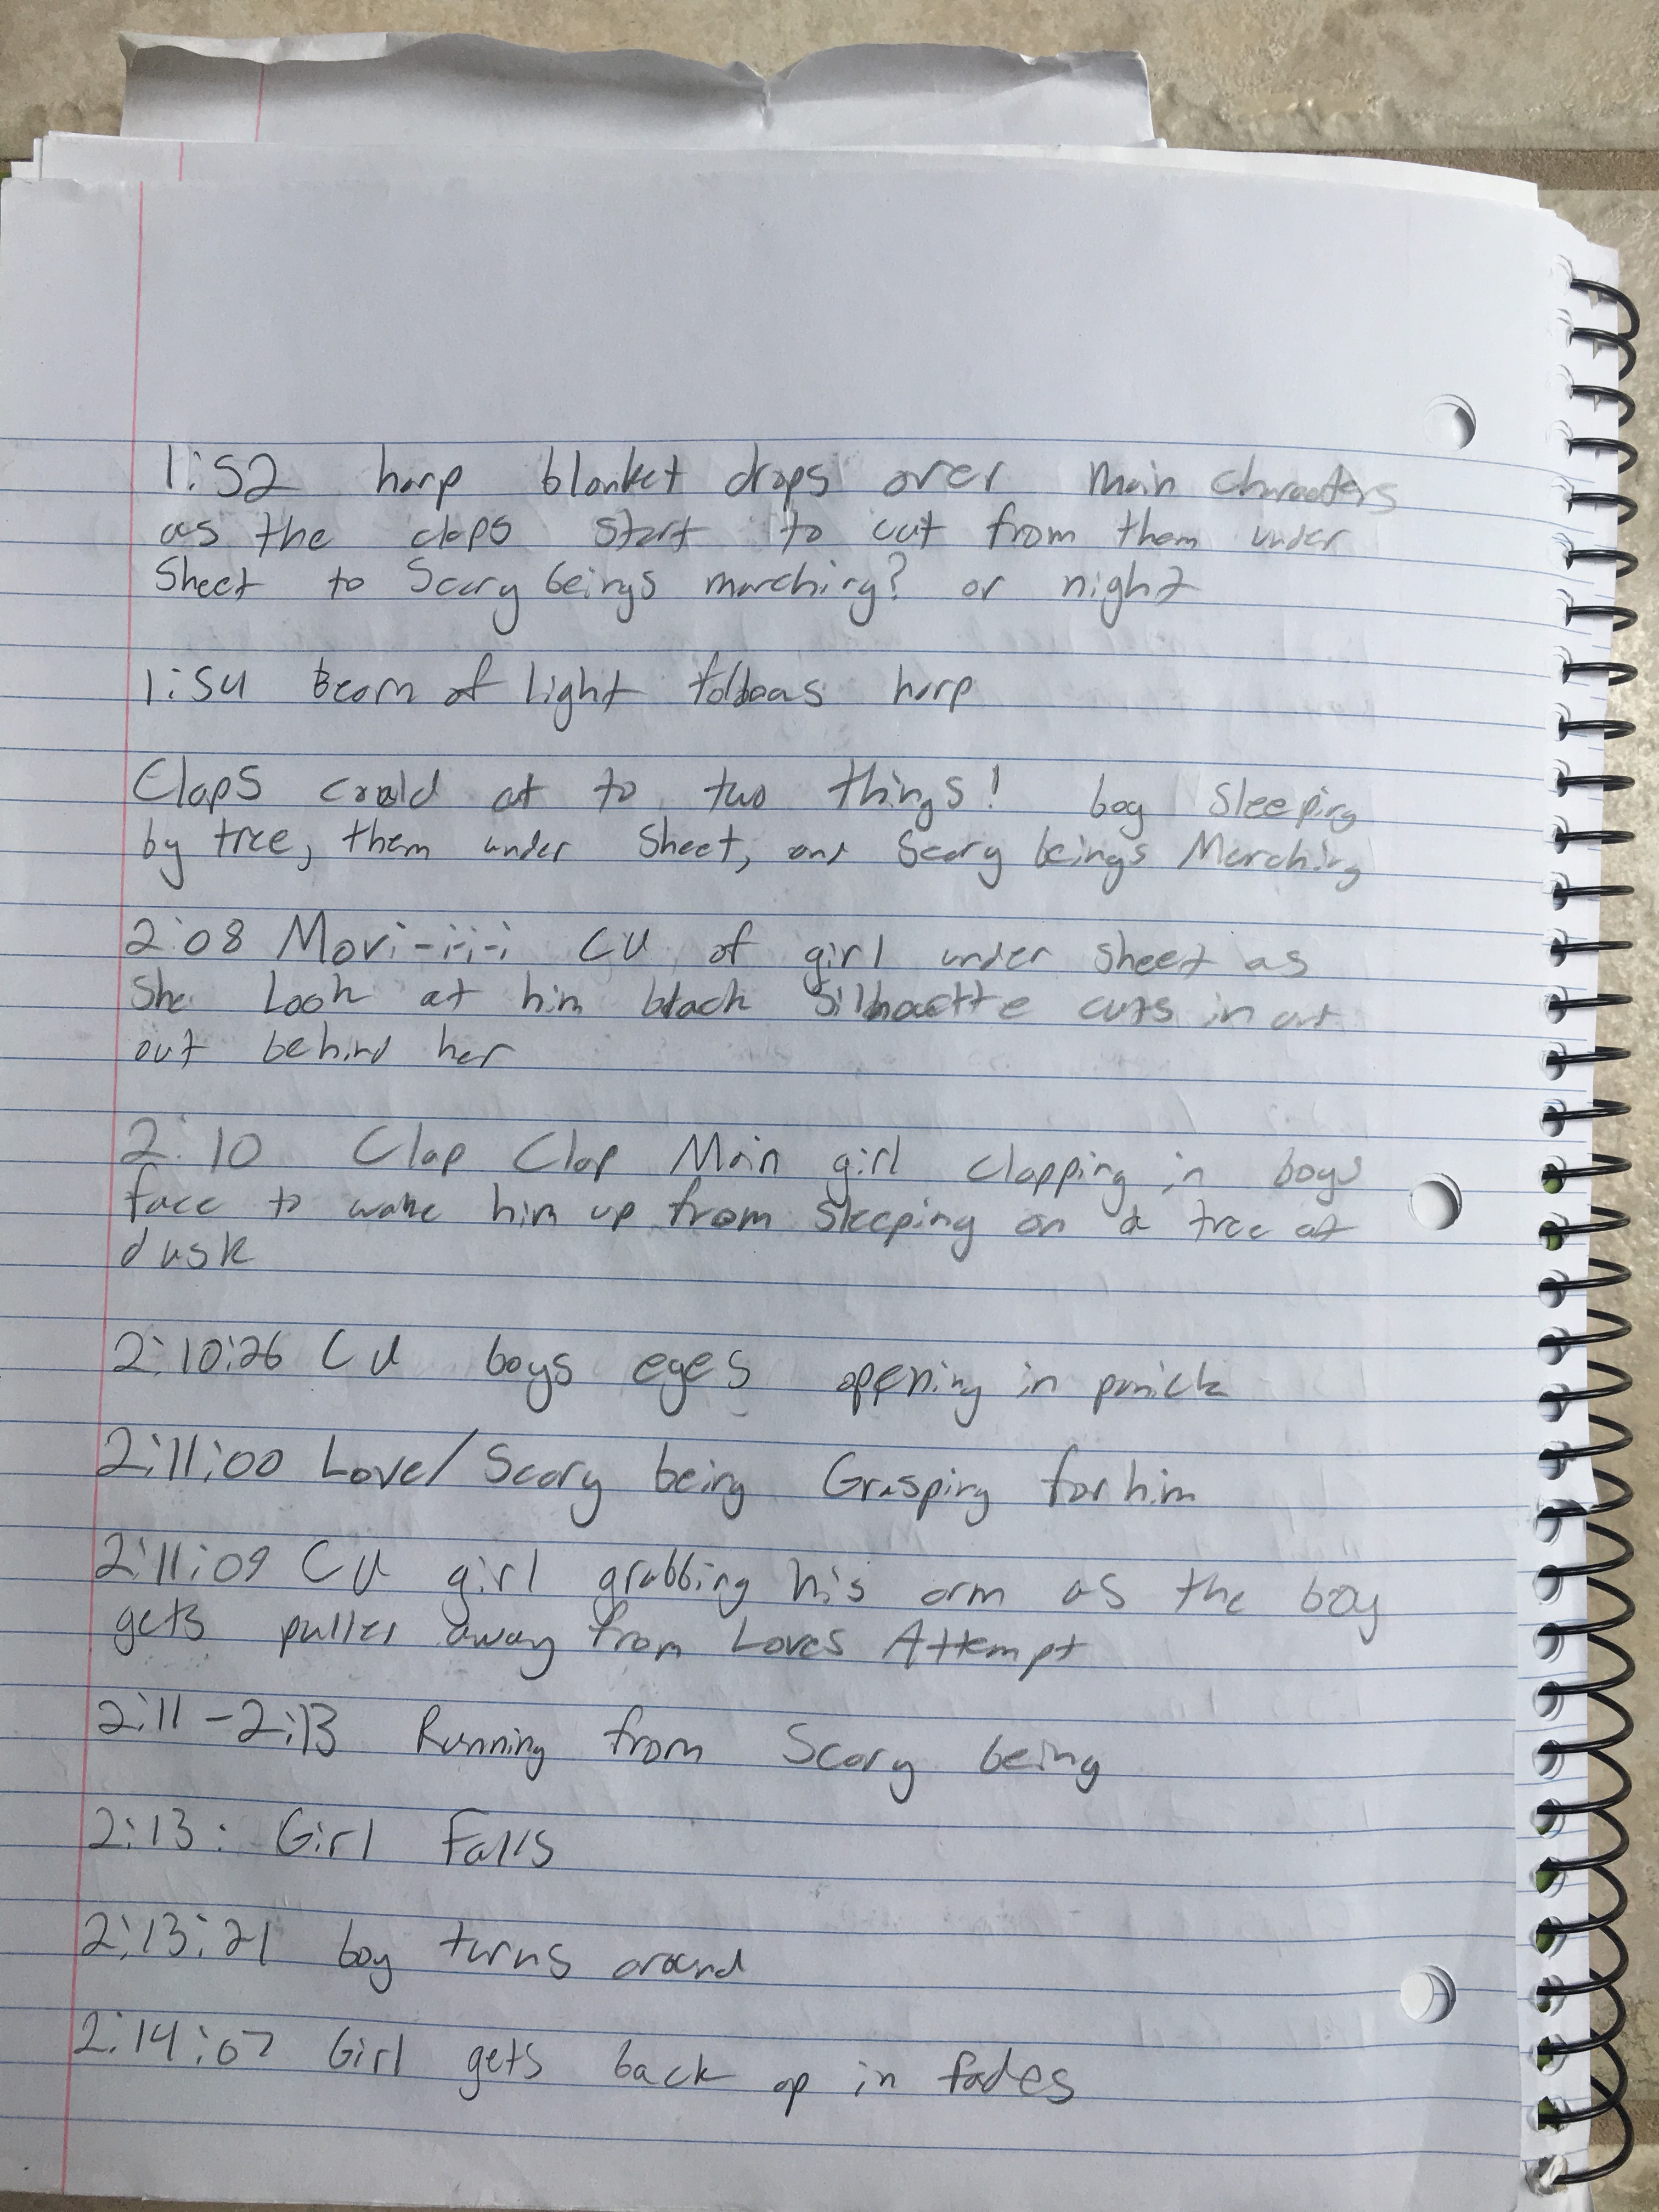 1:52 harp blanket drops over main characters
as the claps start to cut from them under
Sheet to Scary beings marching? or night
1:54 Beam of light follows harp
Claps could cut to two things! boy Sleeping
by tree, them under Sheet, and Scary beings Marching
2:08 Movi-i-i-i CU of girl under sheet as
She Look at him black Silhouette cuts in
out behind her
2:10 Clap Clap Main girl Clapping in boys
face to wake him up from Sleeping on a tree at
dusk
2:10:26 CU boys eyes opening in panick
2:11:00 Love/Scary being Grasping for him
2:11:09 CU girl grabbing his arm as the boy
gets pulled away from Loves Attempt
2:11-2:13 Running from Scary being
2:13: Girl Falls
2:13:21 boy turns around
2:14:07 Girl gets back up in fades